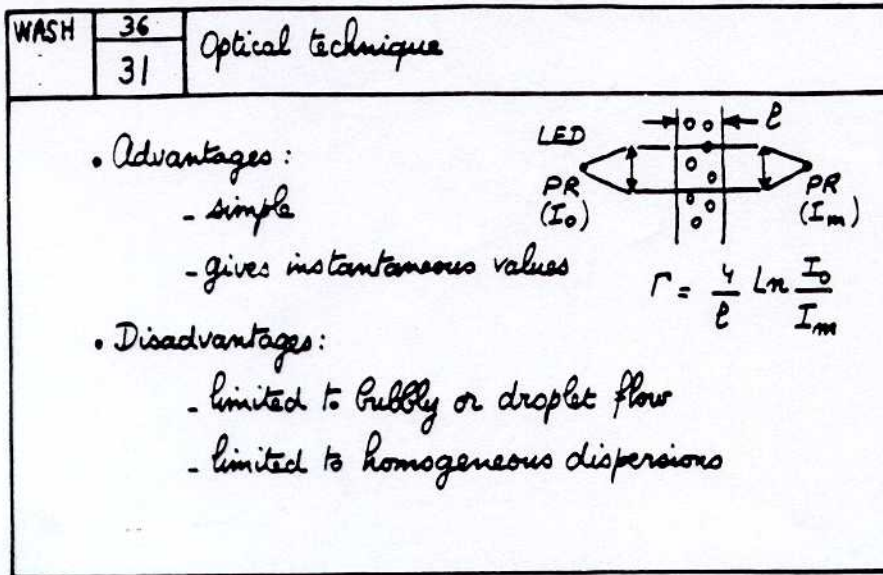 WASH 36 Optical technique
31
• Advantages:
- simple
- gives instantaneous values
LED
PR
(I₀)
l
PR
(Iₘ)
Γ = 4/l Ln I₀/Iₘ
• Disadvantages:
- limited to bubbly or droplet flow
- limited to homogeneous dispersions